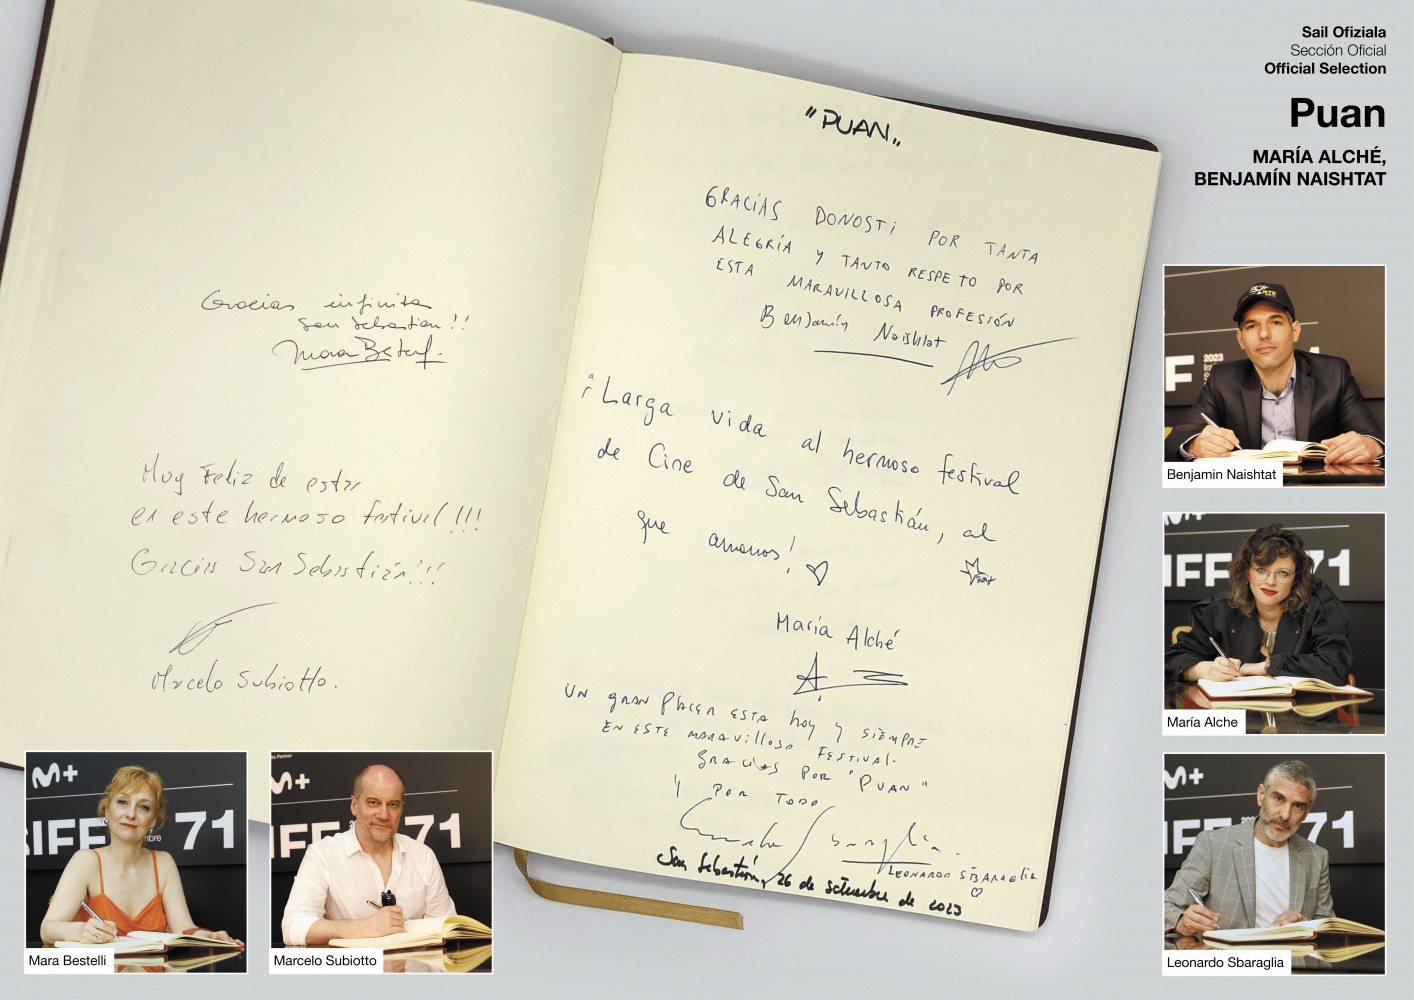 Sail Ofiziala
Sección Oficial
Official Selection
Puan
MARÍA ALCHÉ,
BENJAMÍN NAISHTAT
Gracias infinitas
San Sebastian!!
Mara Bestel
Muy Feliz de estar
en este hermoso festival!!!
Gracias San Sebastián!!!
Marcelo Subiotto.
"PUAN"
GRACIAS DONOSTi POR TANTA
ALEGRÍA Y TANTO RESPETO POR
ESTA MARAVILLOSA PROFESIÓN
Benjamín Naishtat
¡Larga vida al hermoso festival
de Cine de San Sebastián, al
que amamos!
María Alché
UN gRAN PlACER ESTA hoy y SIEMPRE
EN ESTE MARAVilloso FESTIVAL-
GRACIAS POR "PUAN"
y POR TODO
LEONARDO SBARAGLIA
San Sebastián, 26 de setiembre de 2023
F
2023
Benjamin Naishtat
M+
IFF 71
María Alche
M+
Leonardo Sbaraglia
M+
SIFF 71
Mara Bestelli
M+
IFF 71
Marcelo Subiotto